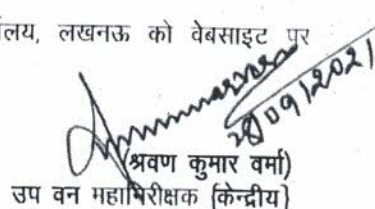 लय, लखनऊ को वेबसाइट पर
28/09/2021
(श्रवण कुमार वर्मा)
उप वन महानिरीक्षक (केन्द्रीय)